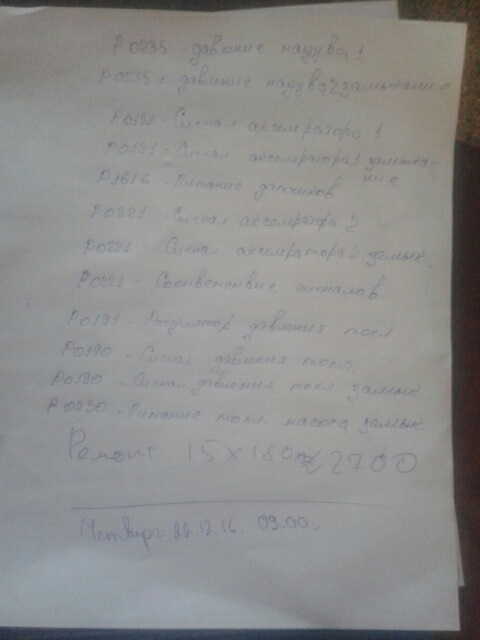 P0235 - давление надува 1
P0235 - давление надува 2 замыкание
P0121 - Сигнал акселератора 1
P0121 - Сигнал акселератора 1 замыка-
ние
P1616 - Питание датчиков
P0221 - Сигнал акселератора 2
P0221 - Сигнал акселератора 2 замык.
P0221 - Соответствие сигналов
P0191 - Регулятор давления топл
P0190 - Сигнал давления топл.
P0190 - Сигнал давления топл. замык
P0230 - Питание топл. насоса замык
Ремонт 15 x 180 2700
Четверг 22.12.16. 09.00.